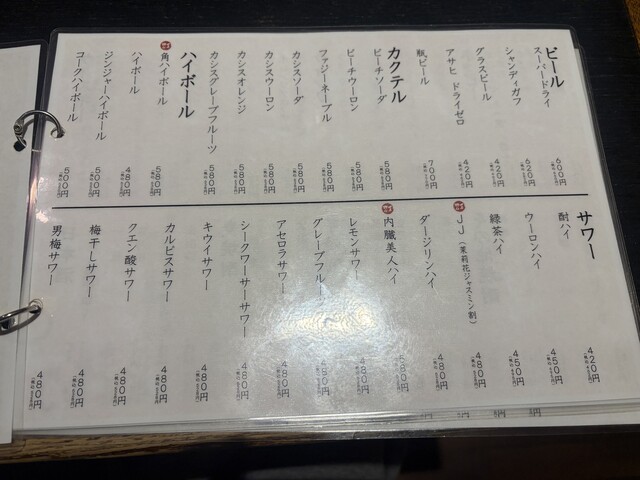 ビール
スーパードライ 600円
シャンディガフ 620円
グラスビール 420円
アサヒ ドライゼロ 420円
瓶ビール 700円
カクテル
ピーチソーダ 580円
ピーチウーロン 580円
ファジーネーブル 580円
カシスソーダ 580円
カシスウーロン 580円
カシスオレンジ 580円
カシスグレープフルーツ 580円
ハイボール
角ハイボール 580円
ハイボール 480円
ジンジャーハイボール 500円
コークハイボール 500円
サワー
酎ハイ 420円
ウーロンハイ 450円
緑茶ハイ 450円
JJ(茉莉花ジャスミン割) 480円
ダージリンハイ 480円
内臓美人ハイ 580円
レモンサワー 480円
グレープフルーツ 480円
アセロラサワー 480円
シークワーサーサワー 480円
キウイサワー 480円
カルピスサワー 480円
クエン酸サワー 480円
梅干しサワー 480円
男梅サワー 480円